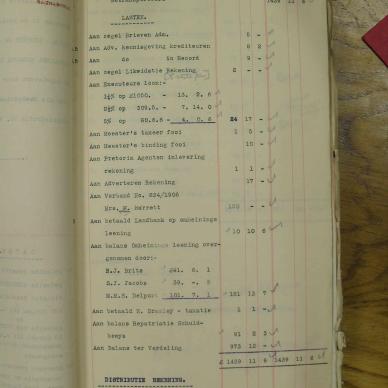 1439 11 6
LASTEN.
Aan zegel Brieven Adm. 5 -
Aan Adv. kennisgeving krediteuren 8 2 -
Aan do in Record 9 -
Aan zegel Likwidatie Rekening 2 - -
Aan Executeurs loon:-
1¼% op £1000. - 12. 2. 6
2½% op 309.5. - 7. 14. 0
5% op - 4. 0. 6 24 17 -
Aan Meester's taxeer fooi 1 5
Aan Meester's binding fooi 10 -
Aan Pretoria Agenten inlevering
rekening 1 1 -
Aan Adverteren Rekening 17 -
Aan Verband No. 624/1906
Mrs. Barrett - -
Aan betaald Landbank op omheinings
leening 10 10 6
Aan balans Omheinings leening over-
genomen door:-
B.J. Brits 41. 6. 1
S.J. Jacobs 39. -. 5
M.M.S. Delport 101. 7. 1 181 13 7
Aan betaald - taxatie 1 1 -
Aan balans Repatriatie Schuld-
bewys 91 2 3
Aan Balans ter Verdeling 973 12 -
£ 1439 11 6 1439 11 6
DISTRIBUTIE REKENING.